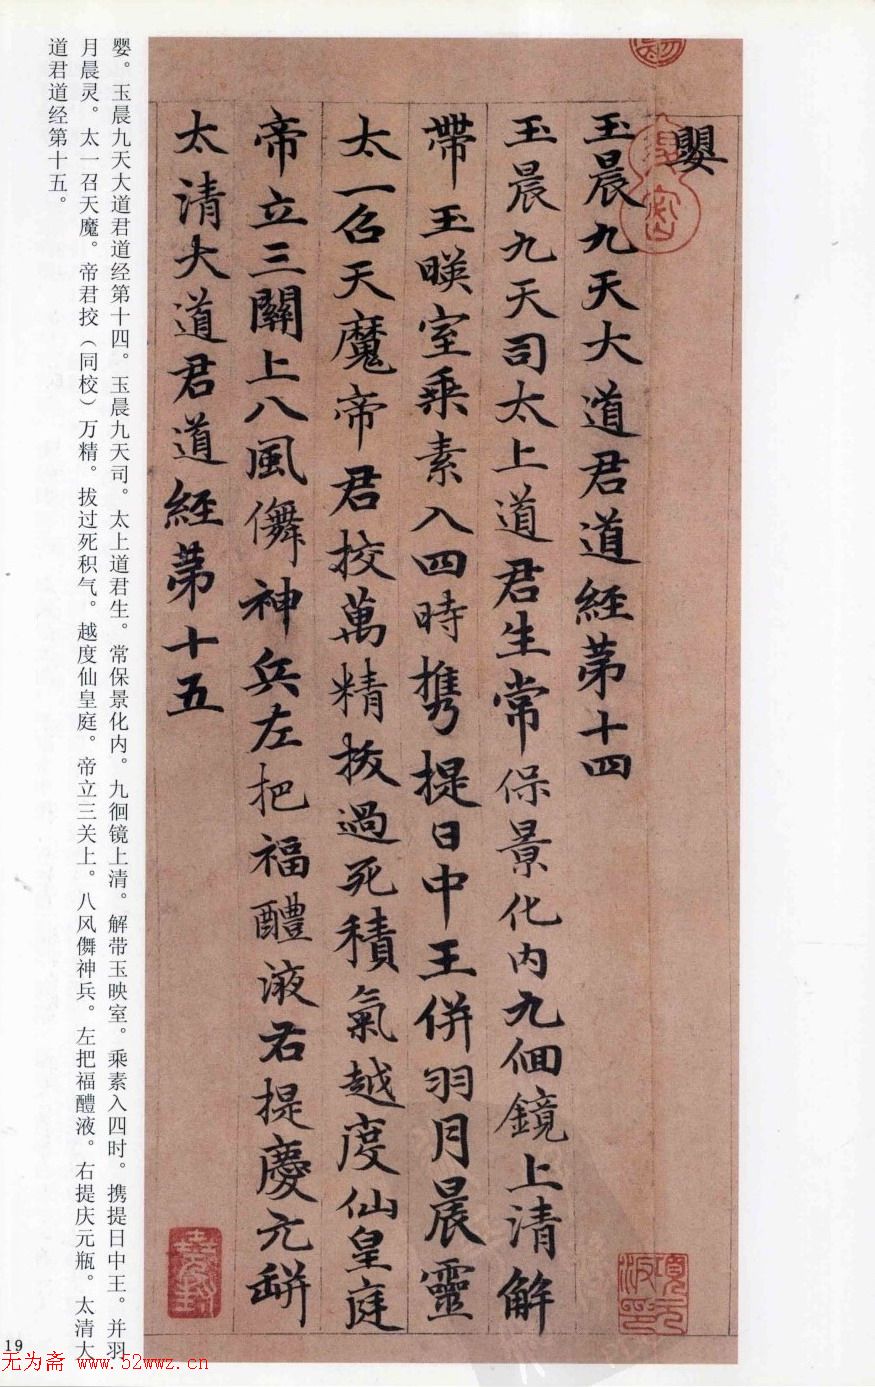 嬰
玉晨九天大道君道經第十四
玉晨九天司太上道君生常保景化内九佪鏡上清解
帶玉暎室乗素入四時携提日中王併羽月晨靈
太一召天魔帝君挍萬精拔過死積氣越度仙皇庭
帝立三關上八風儛神兵左把福醴液右提慶元缾
太清大道君道經第十五
嬰。玉晨九天大道君道经第十四。玉晨九天司。太上道君生。常保景化内。九徊镜上清。解带玉映室。乘素入四时。携提日中王。并羽
月晨灵。太一召天魔。帝君挍（同校）万精。拔过死积气。越度仙皇庭。帝立三关上。八风儛神兵。左把福醴液。右提庆元瓶。太清大
道君道经第十五。
19
无为斋 www.52wwz.cn